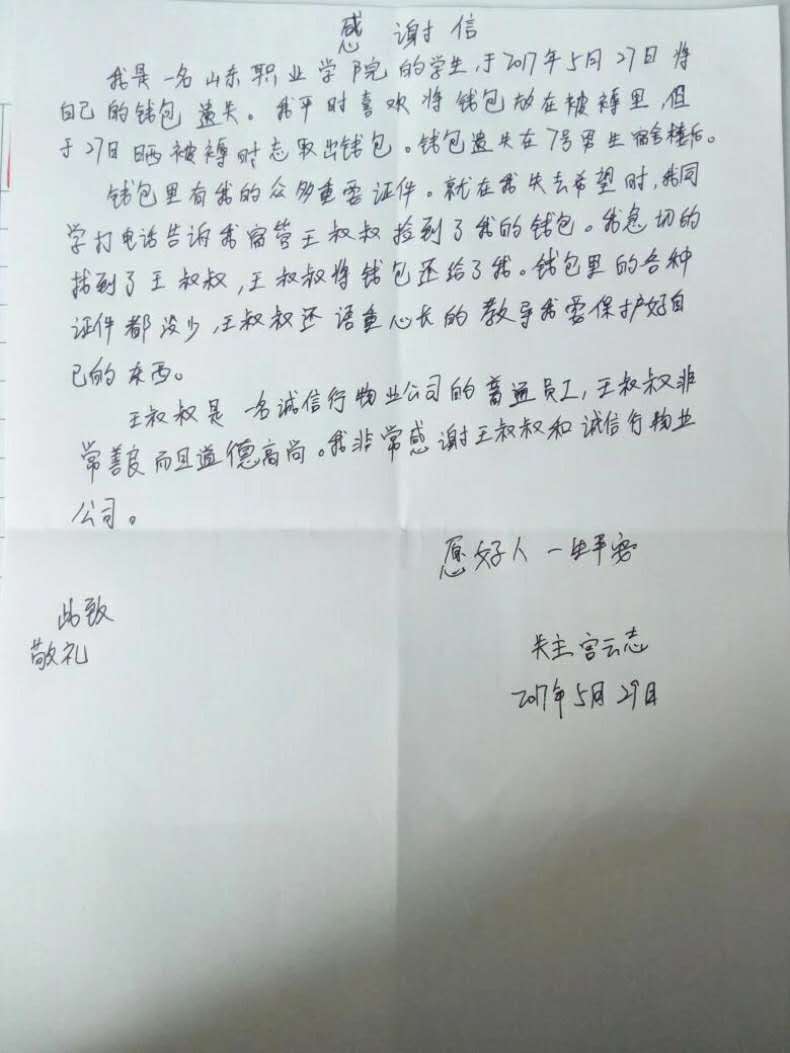 感谢信
我是一名山东职业学院的学生,于2017年5月27日将
自己的钱包遗失。我平时喜欢将钱包放在被褥里,但
于27日晒被褥时忘取出钱包。钱包遗失在7号男生宿舍楼后。
钱包里有我的众多重要证件。就在我失去希望时,我同
学打电话告诉我宿管王叔叔捡到了我的钱包。我急切的
找到了王叔叔,王叔叔将钱包还给了我。钱包里的各种
证件都没少,王叔叔还语重心长的教导我要保护好自
己的东西。
王叔叔是一名诚信行物业公司的普通员工,王叔叔非
常善良而且道德高尚。我非常感谢王叔叔和诚信行物业
公司。
愿好人一生平安
此致
敬礼
失主:宫云志
2017年5月29日